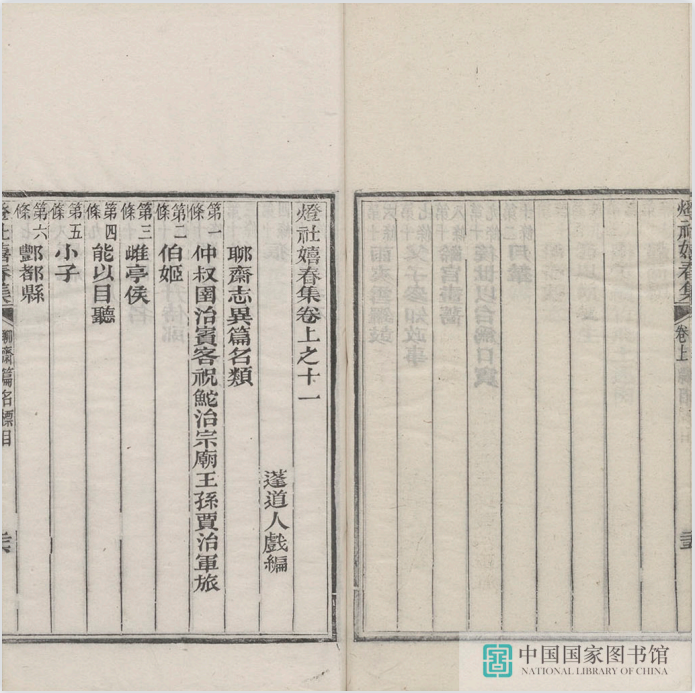 燈社嬉春集
卷上
燈社嬉春集卷上之十一
蘧道人戲編
聊齋志異篇名類
第一條 仲叔圉治賓客祝鮀治宗廟王孫賈治軍旅
第二條 伯姬
第三條 雎亭侯
第四條 能以目聽
第五條 小子
第六條 酆都縣
燈社嬉春集
聊齋篇名標目
中国国家图书馆
NATIONAL LIBRARY OF CHINA